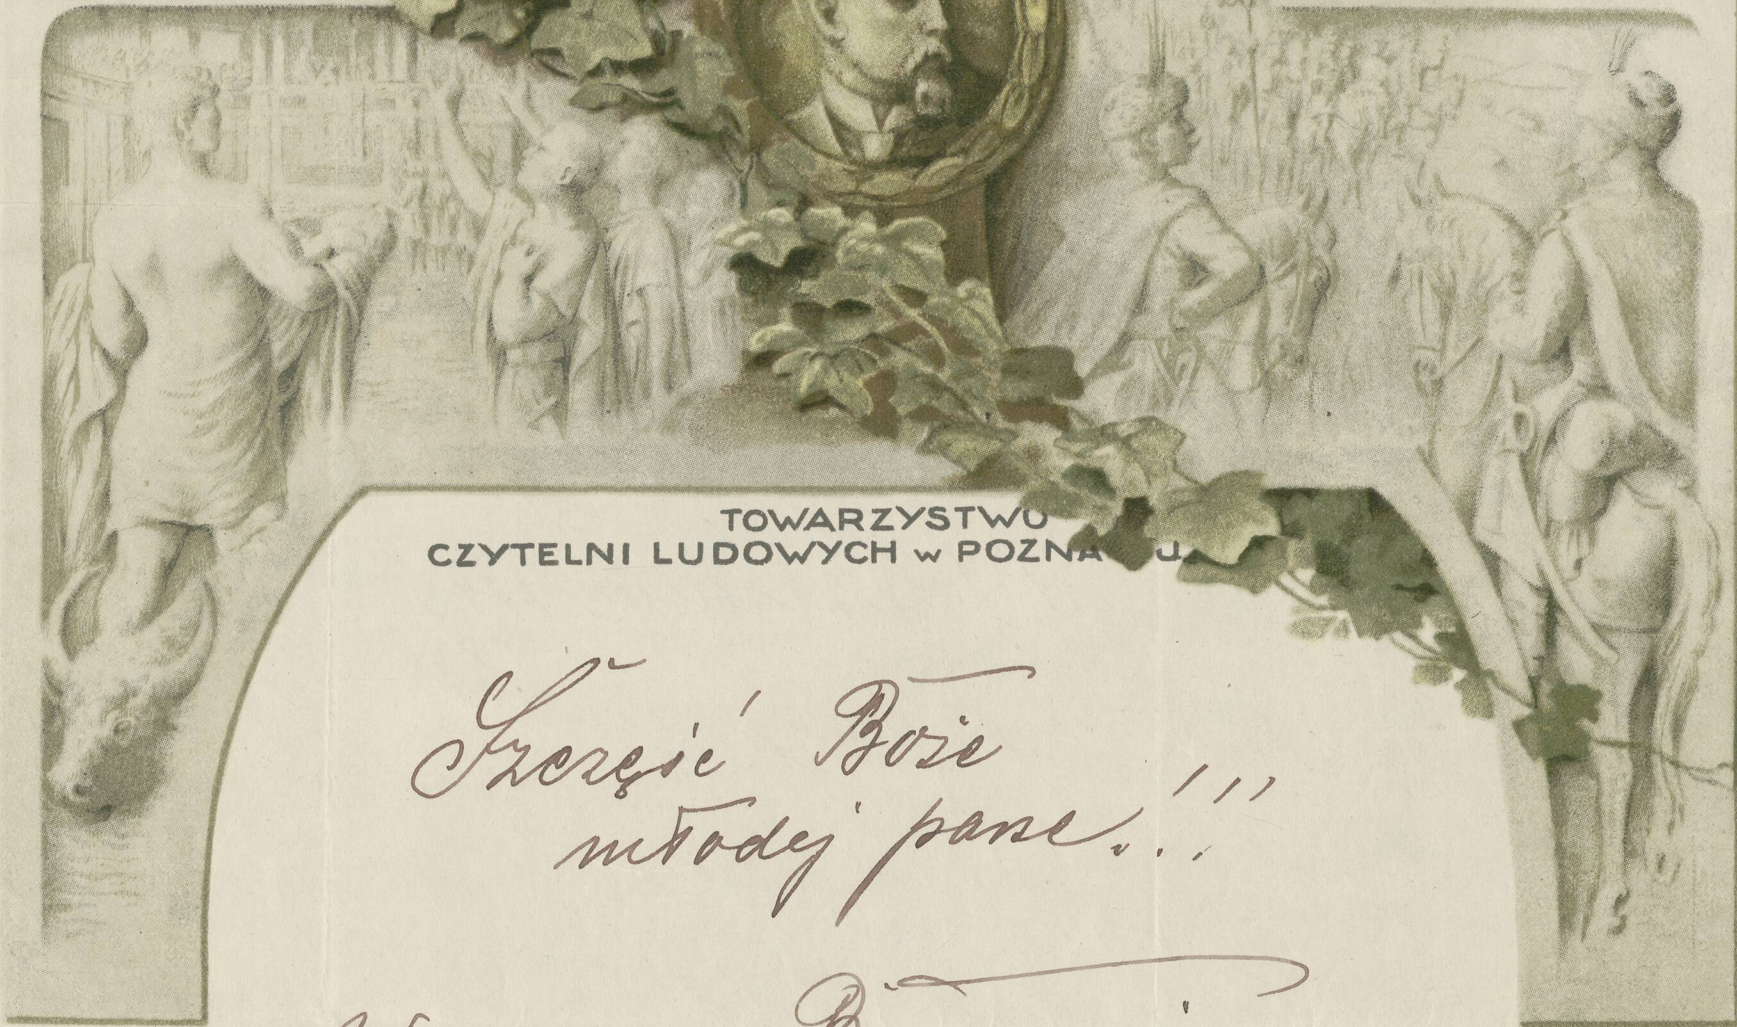 TOWARZYSTWO
CZYTELNI LUDOWYCH w
Szczęść Boże
młodej parze!!!